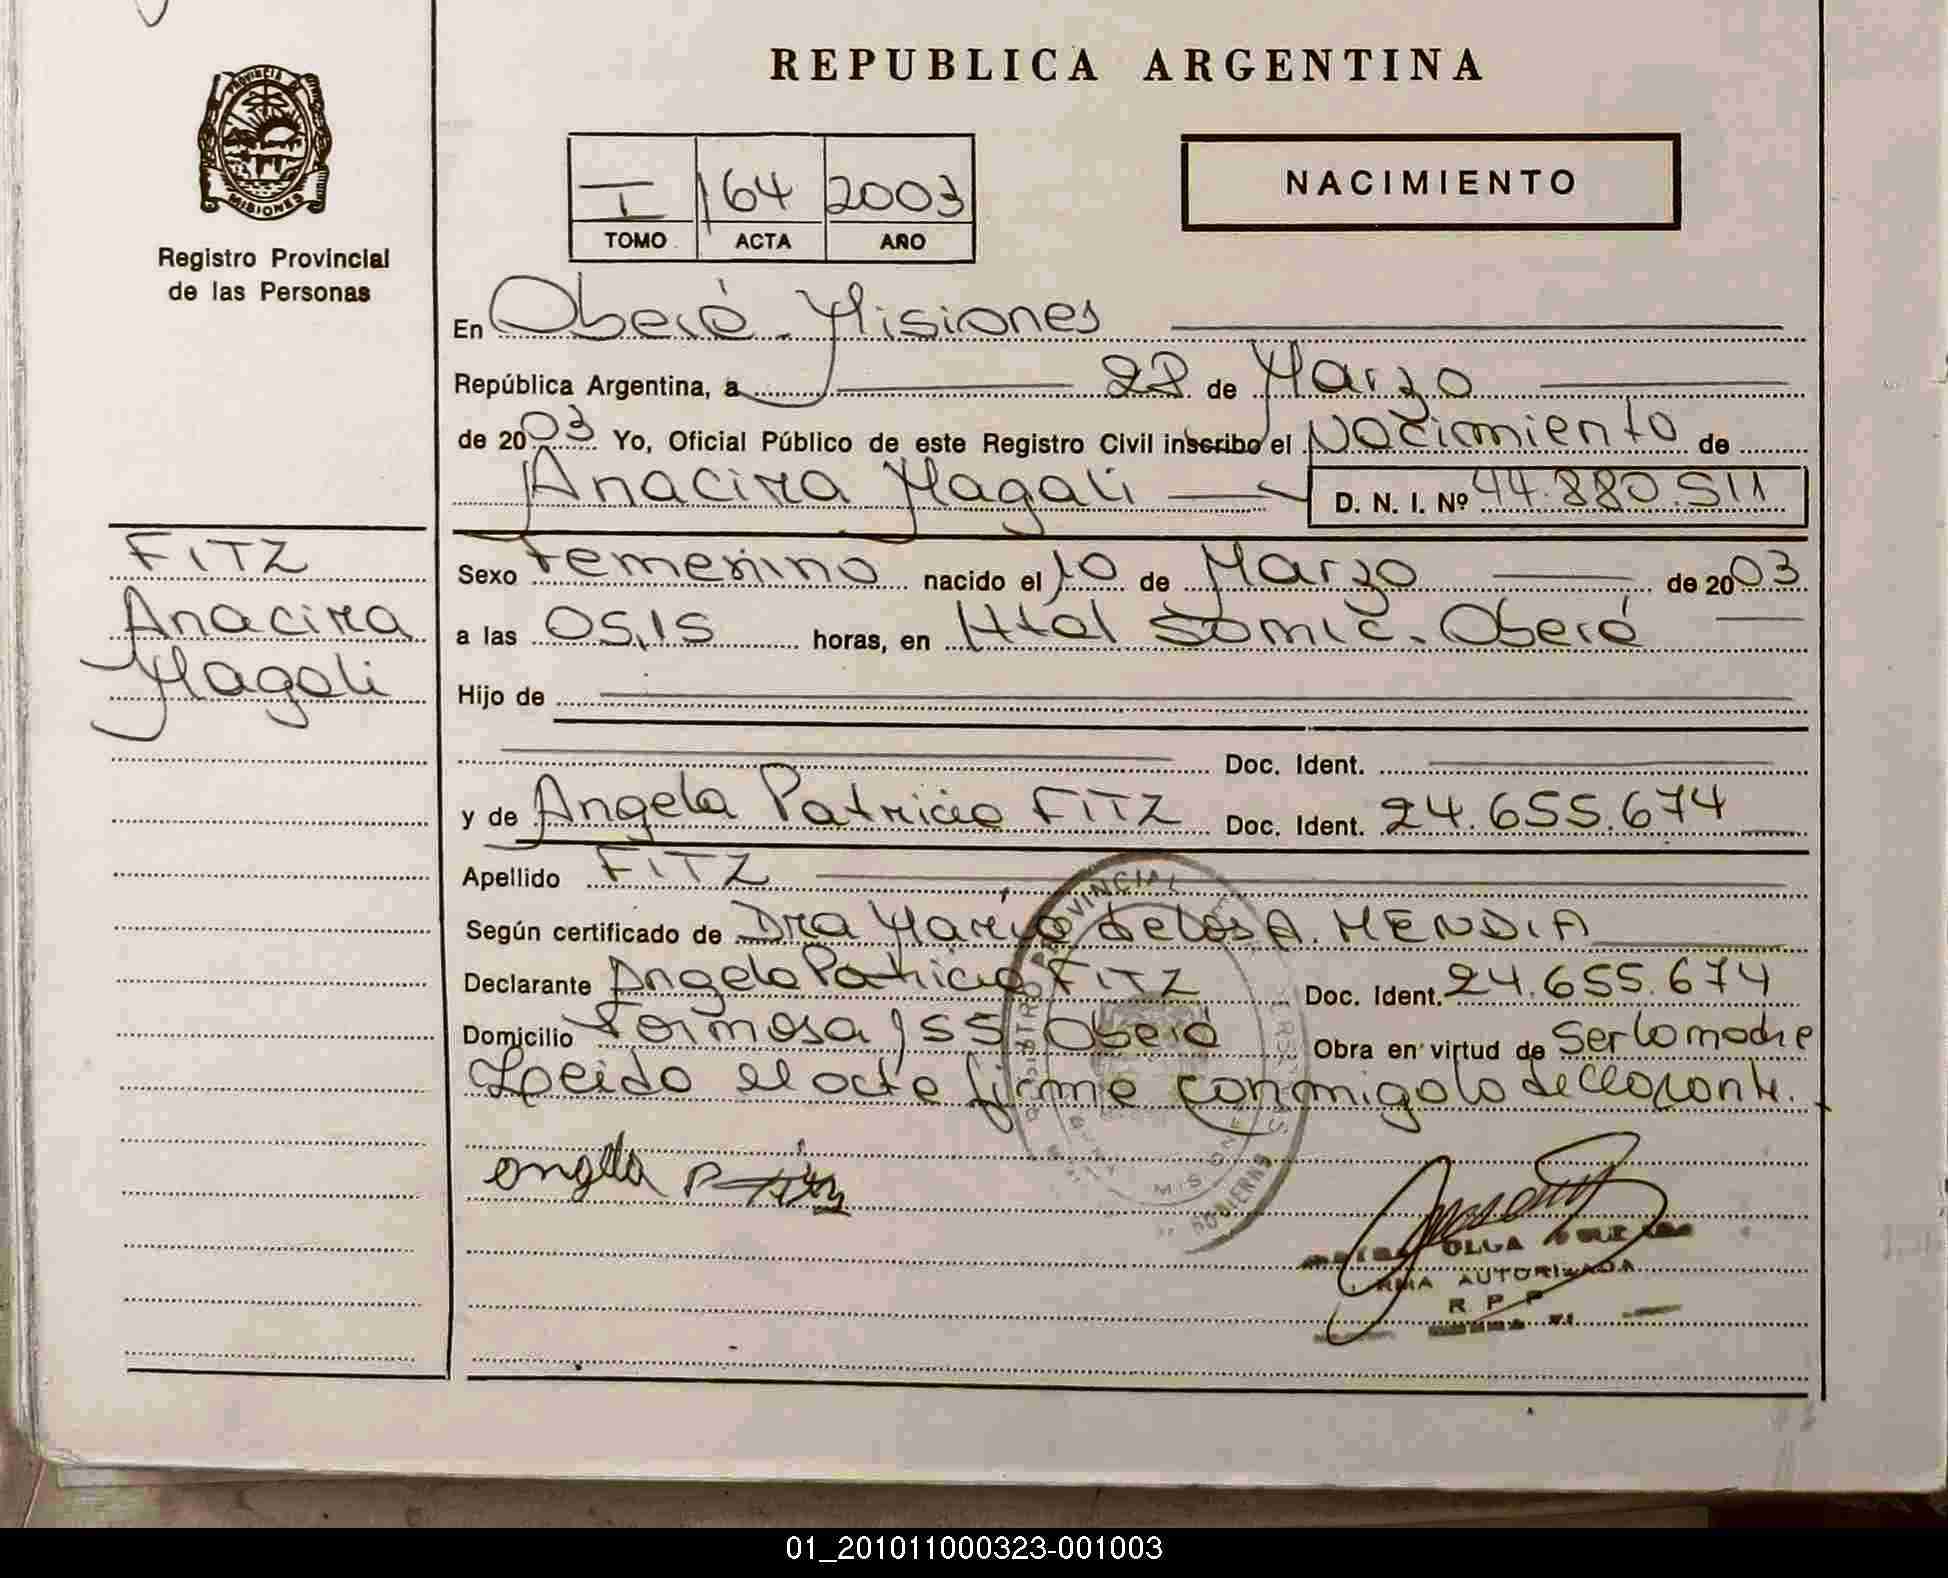 REPUBLICA ARGENTINA
PROVINCIA
MISIONES
Registro Provincial
de las Personas
I 164 2003
TOMO ACTA AÑO
NACIMIENTO
En Oberá - Misiones
República Argentina, a 28 de Marzo
de 2003 Yo, Oficial Público de este Registro Civil inscribo el Nacimiento de
Anacira Magali D. N. I. Nº 44.880.511
FITZ
Anacira
Magali
Sexo Femenino nacido el 10 de Marzo de 2003
a las 05,15 horas, en Htal Samic. Oberá
Hijo de
Doc. Ident.
y de Angela Patricia FITZ Doc. Ident. 24.655.674
Apellido FITZ
Según certificado de Dra María de los A. MENDIA
Declarante Angela Patricia FITZ Doc. Ident. 24.655.674
Domicilio Formosa 155 Oberá Obra en virtud de Ser la madre
Leida el acta firma conmigo la declarante.
PROVINCIAL
MISIONES
angela P Fitz
OLGA
AUTORIZADA
R. P. P.
01_201011000323-001003